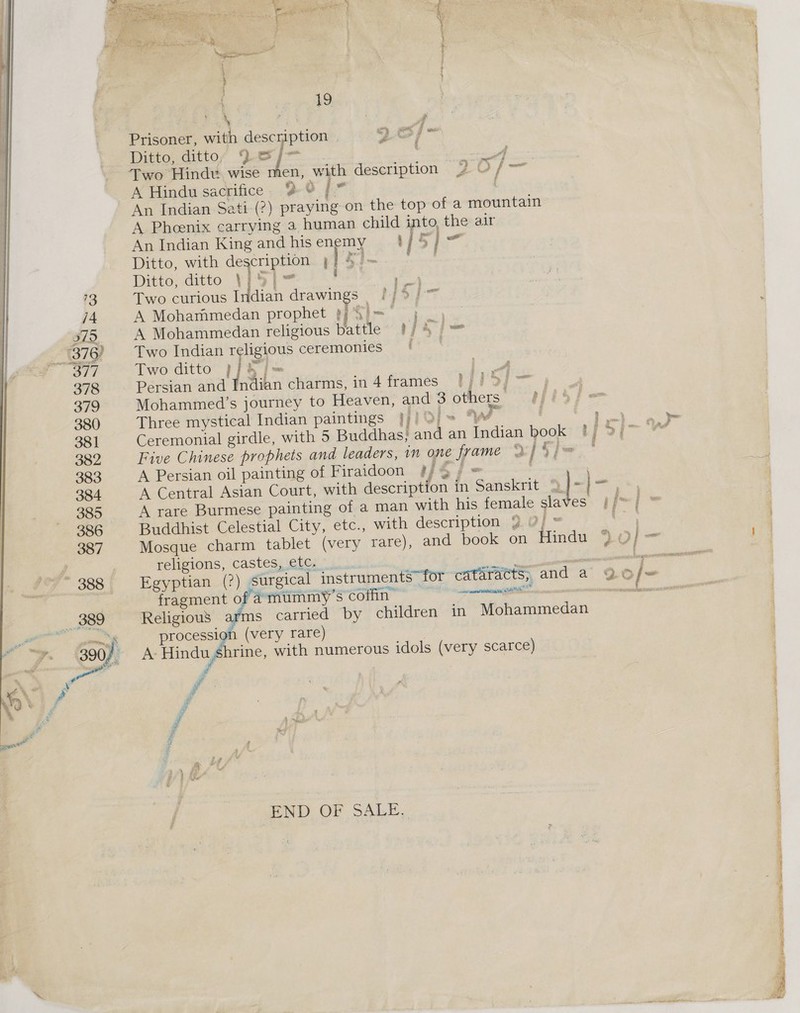 19
Prisoner, with description 20/-
Ditto, ditto, 20/-
Two Hindu wise men, with description 20/-
A Hindu sacrifice 20/-
An Indian Sati (?) praying on the top of a mountain
A Phœnix carrying a human child into the air
An Indian King and his enemy 1/5/-
Ditto, with description 1/5/-
Ditto, ditto 1/5/-
73 Two curious Indian drawings 1/5/-
74 A Mohammedan prophet 1/5/-
375 A Mohammedan religious battle 1/5/-
376 Two Indian religious ceremonies
377 Two ditto 1/5/-
378 Persian and Indian charms, in 4 frames 1/15/-
379 Mohammed's journey to Heaven, and 3 others 1/15/-
380 Three mystical Indian paintings 1/10/-
381 Ceremonial girdle, with 5 Buddhas, and an Indian book 1/5/-
382 Five Chinese prophets and leaders, in one frame 2/5/-
383 A Persian oil painting of Firaidoon 1/5/-
384 A Central Asian Court, with description in Sanskrit 2/-/-
385 A rare Burmese painting of a man with his female slaves 1/-/-
386 Buddhist Celestial City, etc., with description 20/-
387 Mosque charm tablet (very rare), and book on Hindu 20/-
religions, castes, etc.
388 Egyptian (?) surgical instruments for cataracts, and a 20/-
fragment of a mummy's coffin
389 Religious arms carried by children in Mohammedan
procession (very rare)
390 A Hindu shrine, with numerous idols (very scarce)
END OF SALE.